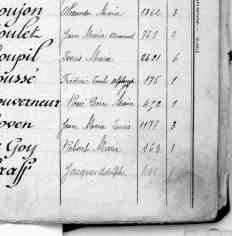 oujon Alexandre Marie 1342 3
oulet Jean Marie 761 2
oupil Louis Marie 2421 6
oussé Frédéric Emile 175 1
ouverneur René Pierre Marie 492 1
oven Jean Marie Louis 1171 3
Goy Robert Marie 463 1
Jacques Adolphe 1